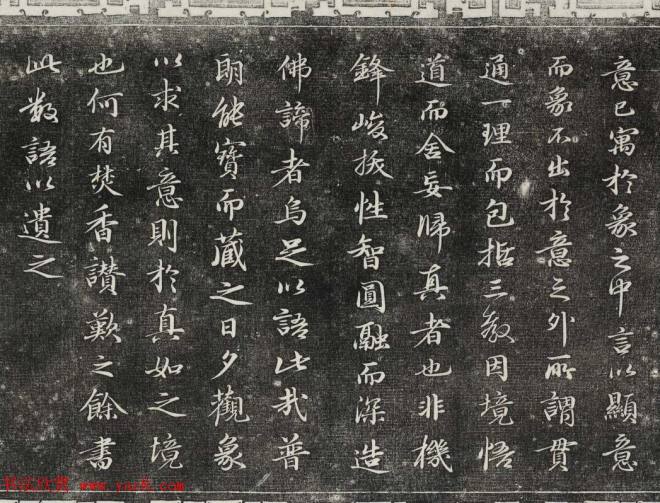 意已寓於象之中言以顯意
而象不出於意之外所謂貫
通一理而包括三教因境悟
道而舍妄歸真者也非機
鋒峻拔性智圓融而深造
佛諦者烏足以語此哉普
明能寶而藏之日夕觀象
以求其意則於真如之境
也何有焚香讚歎之餘書
此數語以遺之
www.yac8.com